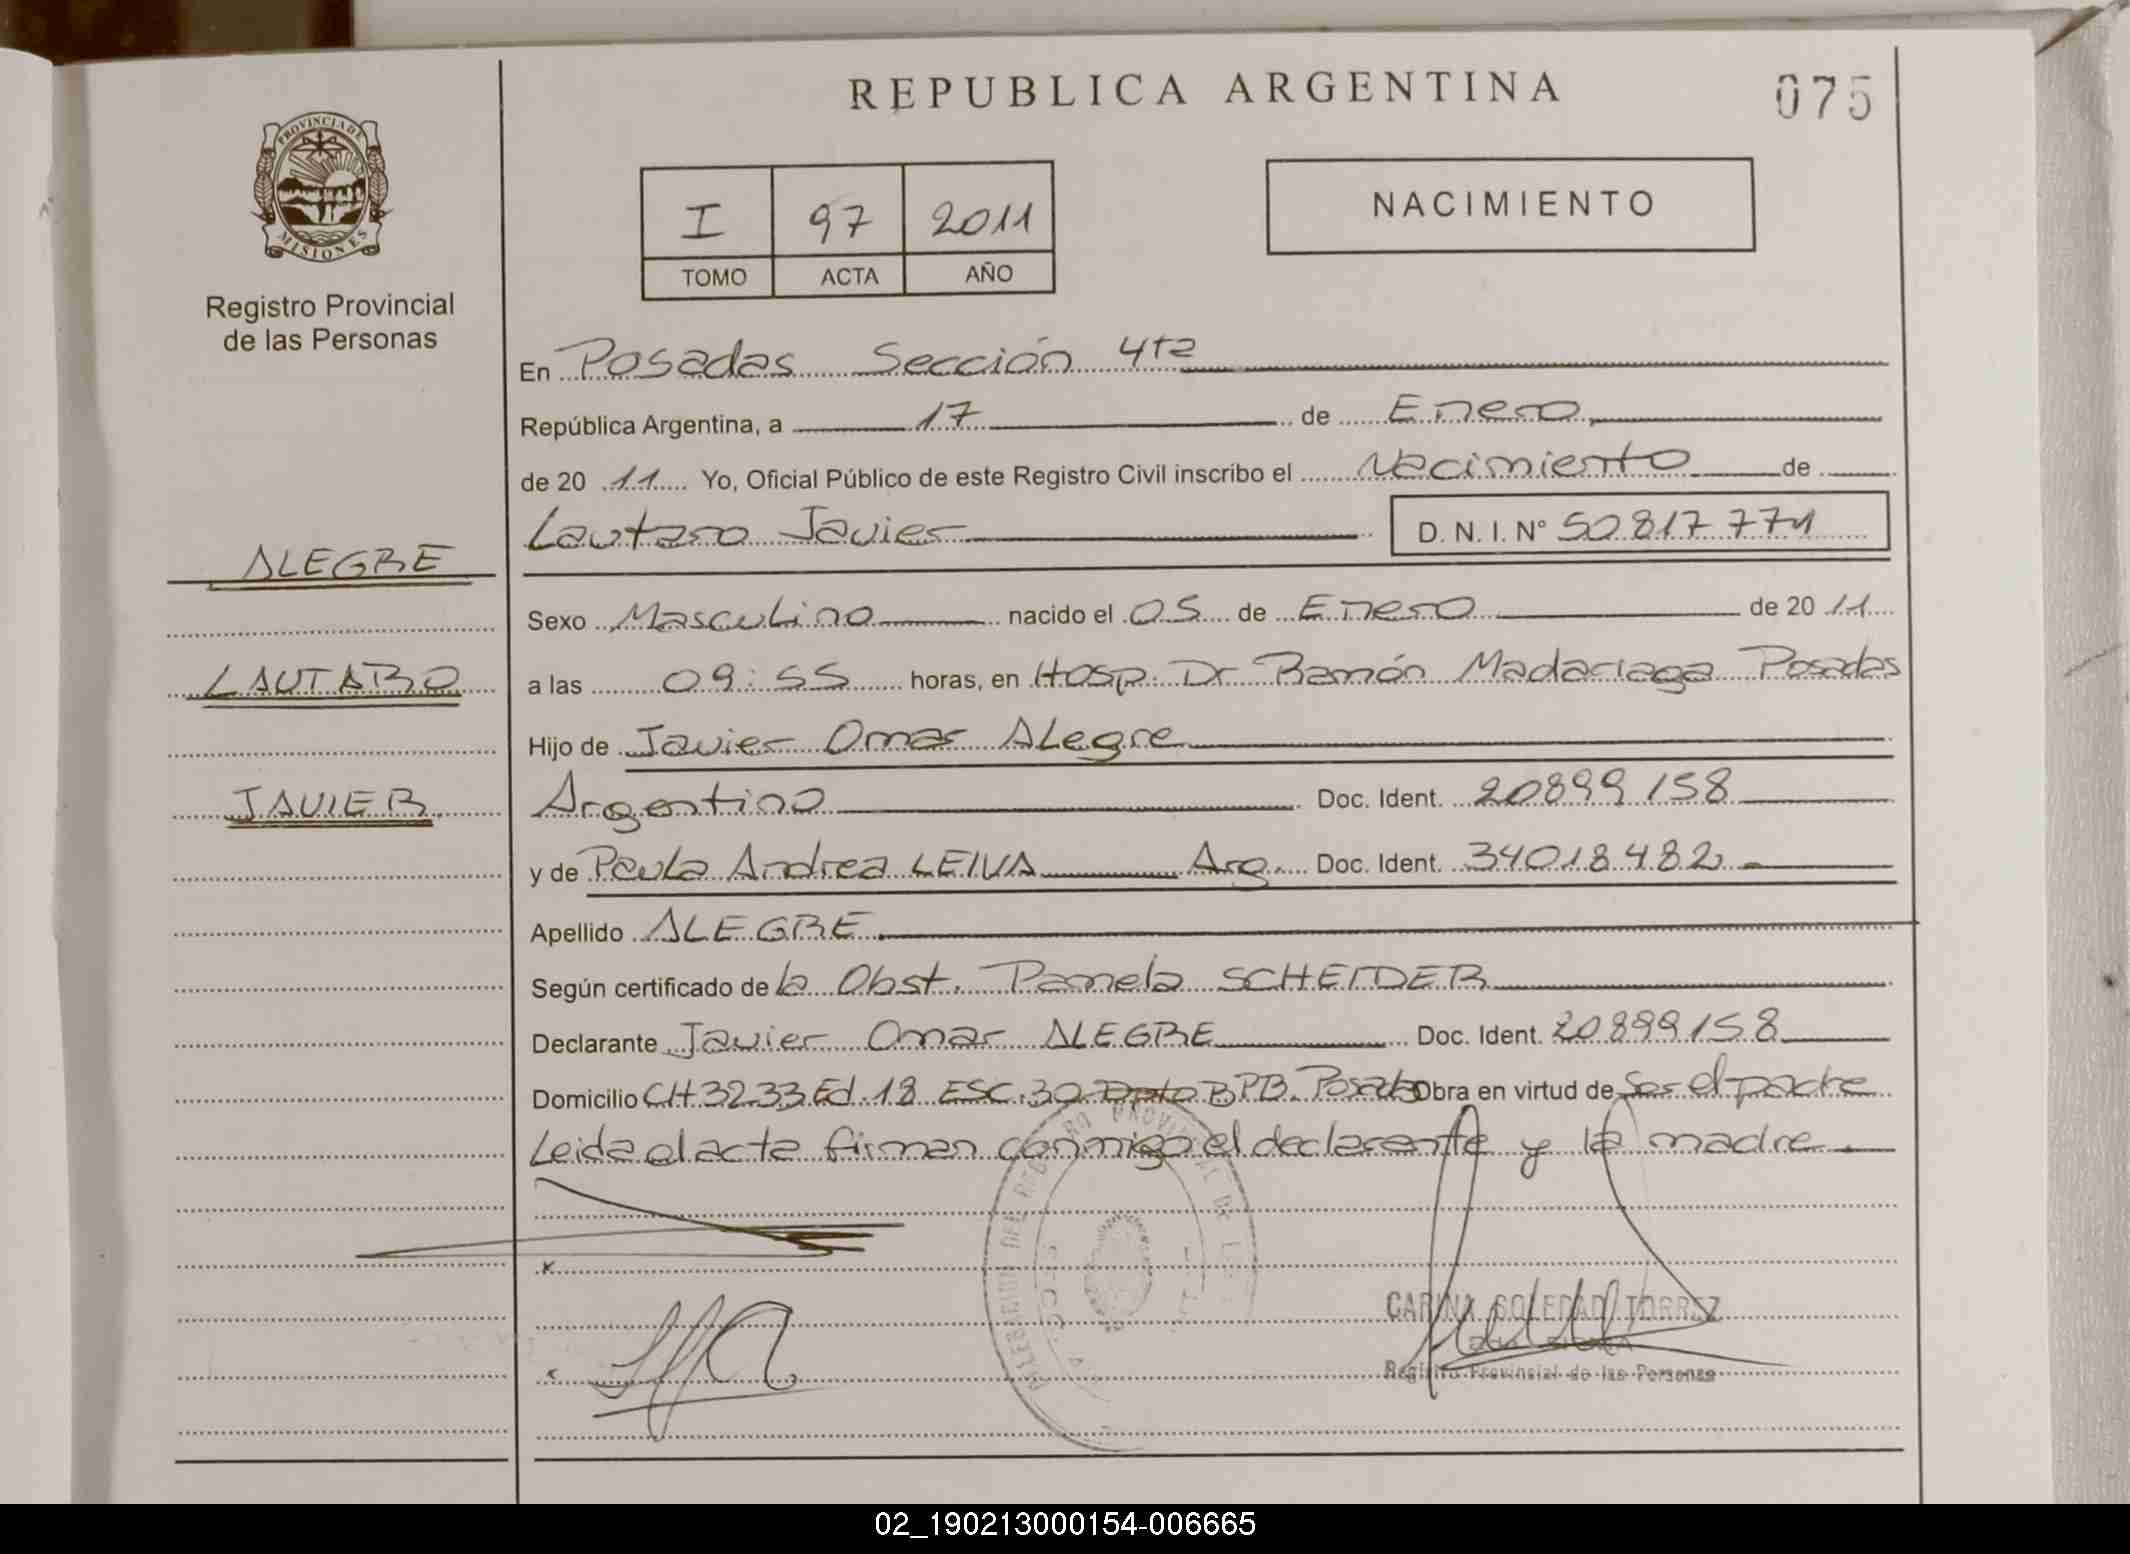 REPUBLICA ARGENTINA
075
PROVINCIA DE
MISIONES
Registro Provincial
de las Personas
I 97 2011
TOMO ACTA AÑO
NACIMIENTO
En Posadas Sección 4ta
República Argentina, a 17 de Enero
de 20 11 Yo, Oficial Público de este Registro Civil inscribo el Nacimiento de
Lautaro Javier D. N. I. N° 50817771
ALEGRE
Sexo Masculino nacido el 05 de Enero de 20 11
LAUTARO
a las 09:55 horas, en Hosp. Dr Ramón Madariaga Posadas
Hijo de Javier Omar ALegre
JAVIER
Argentino Doc. Ident. 20899158
y de Paula Andrea LEIVA Arg. Doc. Ident. 34018482
Apellido ALEGRE
Según certificado de la Obst. Pamela SCHEIDER
Declarante Javier Omar ALEGRE Doc. Ident. 20899158
Domicilio CH 32 33 Ed. 18 ESC. 30 Dpto B PB. Posadas Obra en virtud de Ser el padre
Leida el acta firman conmigo el declarante y la madre.
CARINA SOLEDAD TORREZ
Registro Provincial de las Personas
02_190213000154-006665